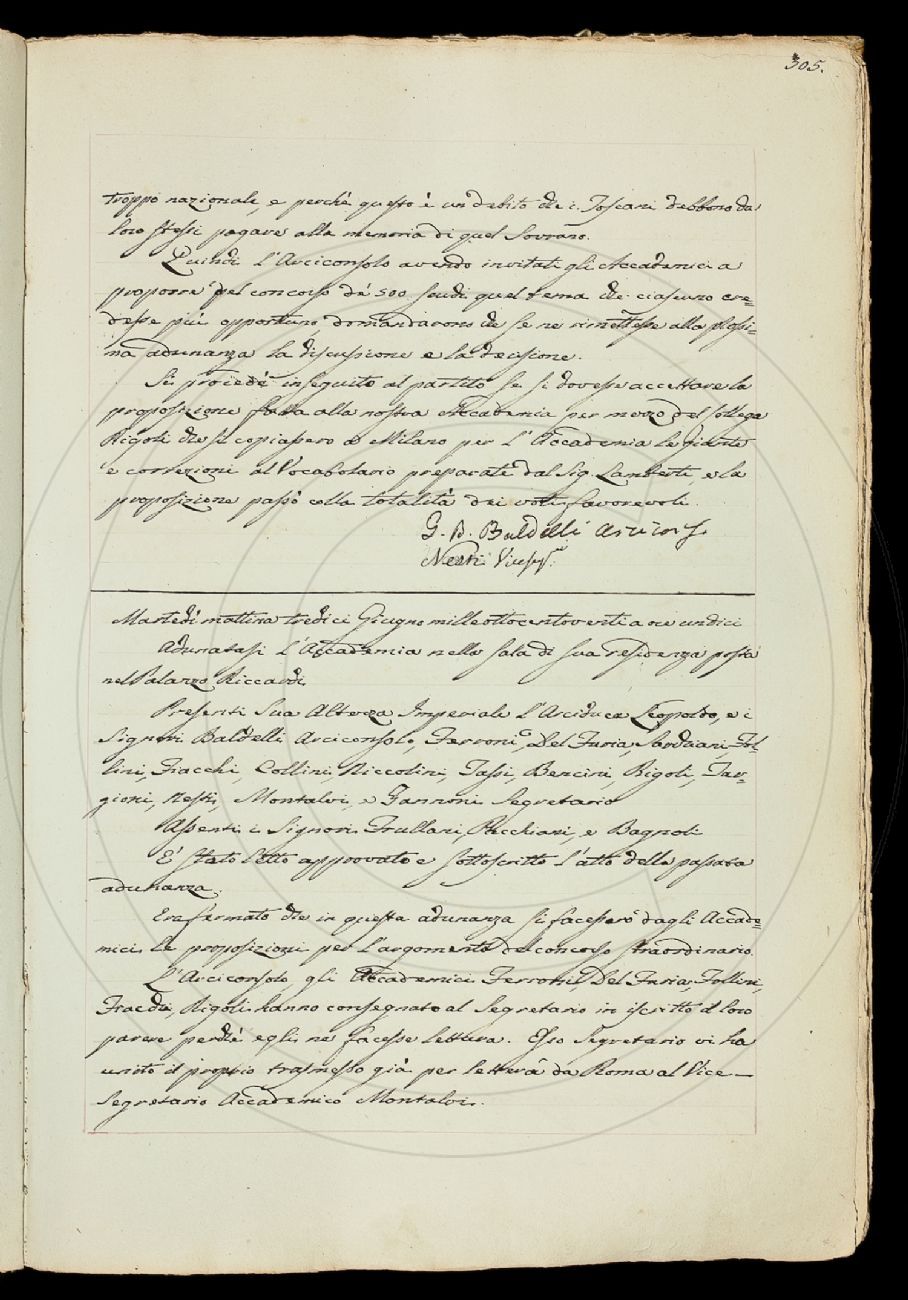 305.
troppo nazionale, e perchè questo è un debito che i Toscani debbono da
loro stessi pagare alla memoria di quel Sovrano.
Quindi l'Arciconsolo avendo invitati gli Accademici a
proporre pel concorso de' 500 scudi quel tema che ciascuno cre=
desse più opportuno domandarono che se ne rimettesse alla prossi=
ma adunanza la discussione e la decisione.
Si procedè in seguito al partito se si dovesse accettare la
proposizione fatta alla nostra Accademia per mezzo del collega
Rigoli che si copiassero a Milano per l'Accademia le giunte
e correzioni al Vocabolario preparate dal Sig. Lamberti, e la
proposizione passò colla totalità dei voti favorevoli.
G. B. Baldelli Arcicons.
Nesti Viceseg.
Martedì mattina tredici Giugno milleottocentoventi a ore undici
Adunatasi l'Accademia nella sala di sua residenza posta
nel Palazzo Riccardi
Presenti Sua Altezza Imperiale l'Arciduca Leopoldo, e i
Signori Baldelli Arciconsolo, Ferroni, Del Furia, Sarchiani, Fol=
lini, Fiacchi, Collini, Niccolini, Tassi, Bencini, Rigoli, Tar=
gioni, Nesti, Montalvi, e Zannoni Segretario
Assenti i Signori Frullani, Pecchiani, e Bagnoli
È stato letto approvato e sottoscritto l'atto della passata
adunanza.
Era fermato che in questa adunanza si facessero dagli Accade=
mici le proposizioni per l'argomento del concorso straordinario.
L'Arciconsolo, gli Accademici Ferroni, Del Furia, Follini,
Fiacchi, Rigoli hanno consegnato al Segretario in iscritto il loro
parere perchè egli ne facesse lettura. Esso Segretario vi ha
unito il proprio trasmesso già per lettera da Roma al Vice-
Segretario Accademico Montalvi.